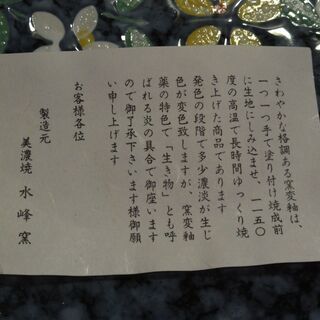 さわやかな格調ある窯変釉は、
一つ一つ手で塗り付け焼成前
に生地にしみ込ませ、一一五〇
度の高温で長時間ゆっくり焼
き上げた商品であります
発色の段階で多少濃淡が生じ
色が変色致しますが、窯変釉
薬の特色で「生き物」とも呼
ばれる炎の具合で御座います
ので御了承下さいます様御願
い申し上げます
お客様各位
製造元
美濃焼 水峰窯